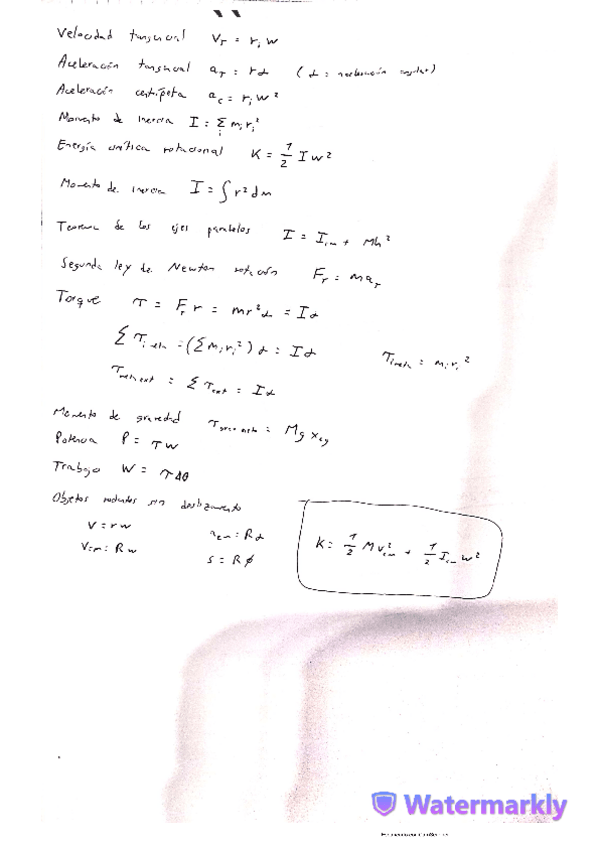 Velocidad tangencial v_T = r_i w
Aceleración tangencial a_T = r α (α = aceleración angular)
Aceleración centrípeta a_c = r_i w²
Momento de inercia I = Σ_i m_i r_i²
Energía cinética rotacional K = 1/2 I w²
Momento de inercia I = ∫ r² dm
Teorema de los ejes paralelos I = I_cm + Mh²
Segunda ley de Newton rotación F_r = m a_r
Torque τ = F_r r = m r² α = I α
Σ τ_i neto = (Σ m_i r_i²) α = I α τ_i neto = m_i r_i²
τ_neto ext = Σ τ_ext = I α
Momento de gravedad = M g x_cg
Potencia P = τ w
Trabajo W = τ Δθ
Objetos rodantes sin deslizamiento
V = r w a_cm = R α
V_cm = R w s = R ϕ
K = 1/2 M v_cm² + 1/2 I_cm w²
Watermarkly